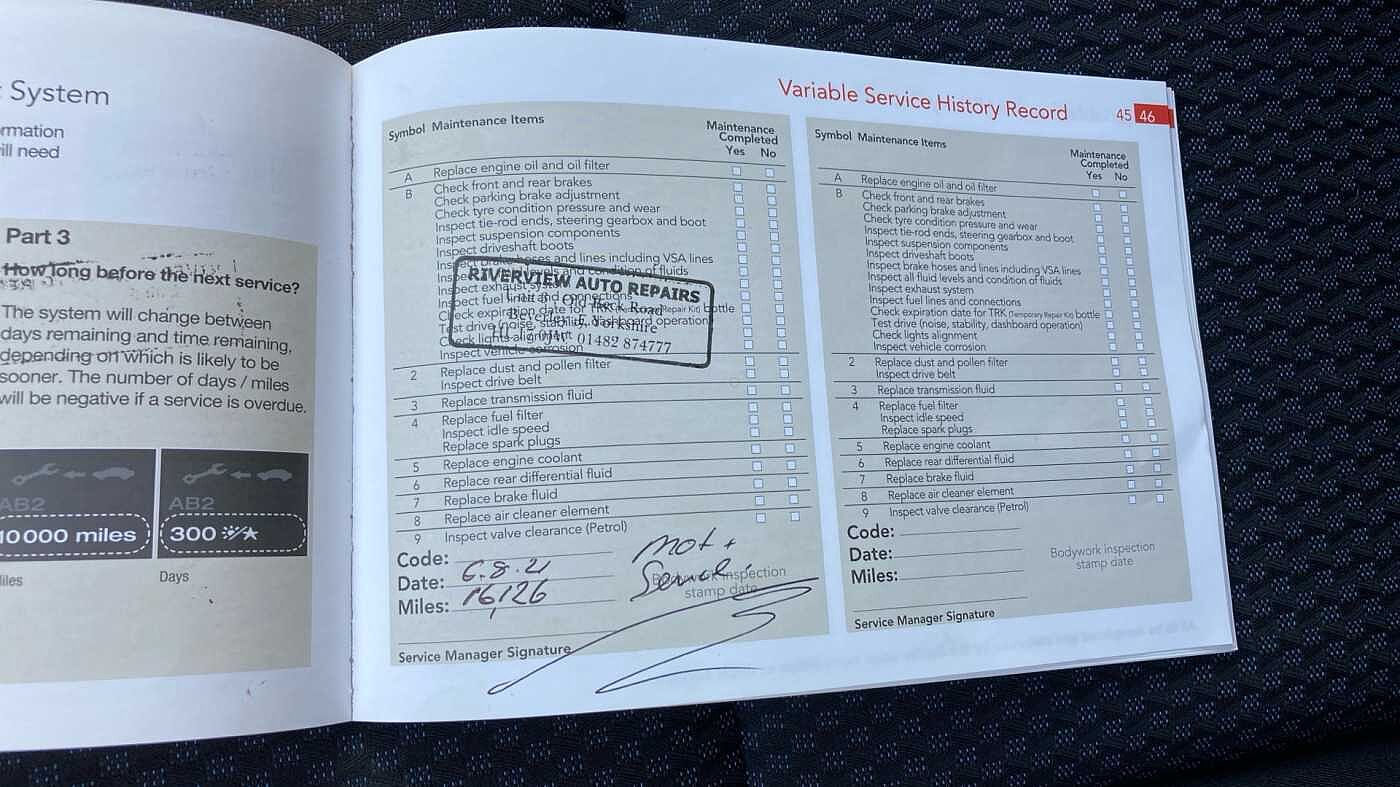 System
rmation
ill need
Part 3
How long before the next service?
The system will change between
days remaining and time remaining,
depending on which is likely to be
sooner. The number of days / miles
will be negative if a service is overdue.
AB2
10000 miles
iles
AB2
300
Days
Variable Service History Record 45 46
Symbol Maintenance Items
Maintenance
Completed
Yes No
A Replace engine oil and oil filter
B Check front and rear brakes
Check parking brake adjustment
Check tyre condition pressure and wear
Inspect tie-rod ends, steering gearbox and boot
Inspect suspension components
Inspect driveshaft boots
hoses and lines including VSA lines
levels and condition of fluids
Inspect exhaust system
Inspect fuel lines and connections
Check expiration date for TRK (Temporary Repair Kit) bottle
Test drive (noise, stability, dashboard operation)
Check lights alignment
Inspect vehicle corrosion
RIVERVIEW AUTO REPAIRS
Old Beck Road
Beverley, E. Yorkshire
01482 874777
2 Replace dust and pollen filter
Inspect drive belt
3 Replace transmission fluid
4 Replace fuel filter
Inspect idle speed
Replace spark plugs
5 Replace engine coolant
6 Replace rear differential fluid
7 Replace brake fluid
8 Replace air cleaner element
9 Inspect valve clearance (Petrol)
Code:
Date: 6.8.21
Miles: 16,126
mot +
Bodywork inspection
stamp date
Service Manager Signature
Symbol Maintenance Items
Maintenance
Completed
Yes No
A Replace engine oil and oil filter
B Check front and rear brakes
Check parking brake adjustment
Check tyre condition pressure and wear
Inspect tie-rod ends, steering gearbox and boot
Inspect suspension components
Inspect driveshaft boots
Inspect brake hoses and lines including VSA lines
Inspect all fluid levels and condition of fluids
Inspect exhaust system
Inspect fuel lines and connections
Check expiration date for TRK (Temporary Repair Kit) bottle
Test drive (noise, stability, dashboard operation)
Check lights alignment
Inspect vehicle corrosion
2 Replace dust and pollen filter
Inspect drive belt
3 Replace transmission fluid
4 Replace fuel filter
Inspect idle speed
Replace spark plugs
5 Replace engine coolant
6 Replace rear differential fluid
7 Replace brake fluid
8 Replace air cleaner element
9 Inspect valve clearance (Petrol)
Code:
Date:
Miles:
Bodywork inspection
stamp date
Service Manager Signature